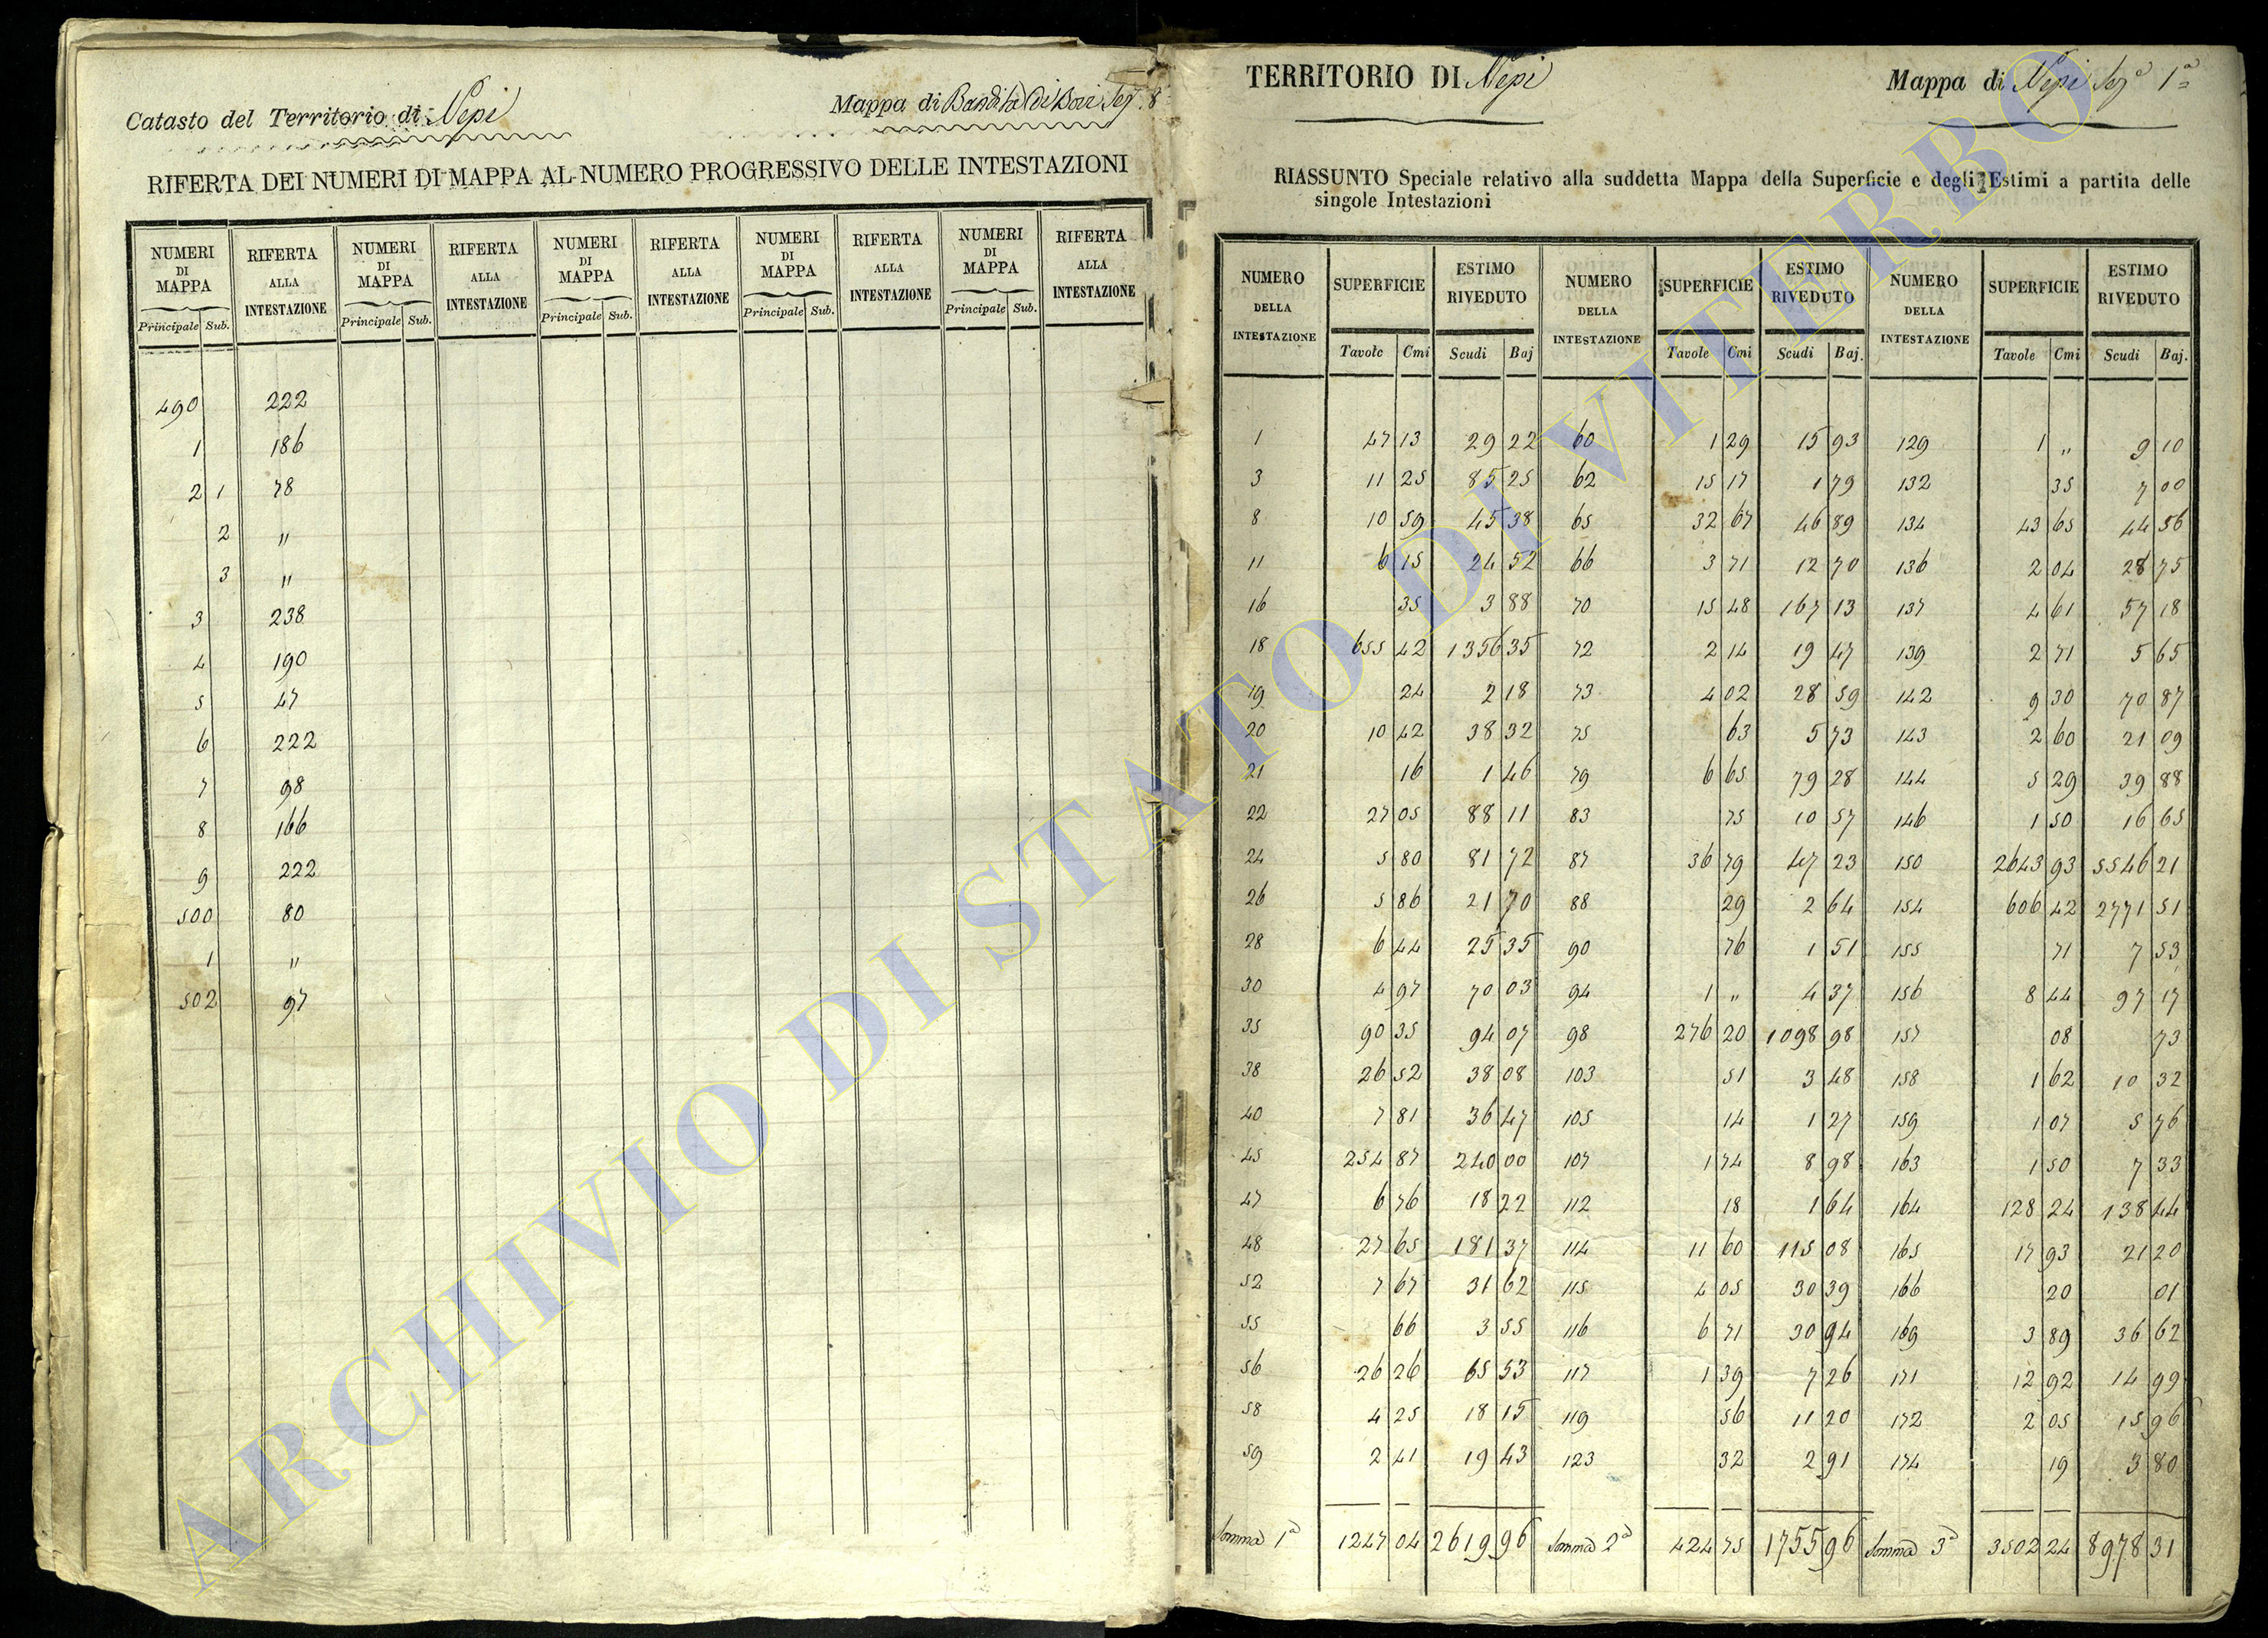 Catasto del Territorio di Nepi
Mappa di Bandita di Bovi Sez. 8
RIFERTA DEI NUMERI DI MAPPA AL NUMERO PROGRESSIVO DELLE INTESTAZIONI
NUMERI DI MAPPA RIFERTA ALLA INTESTAZIONE NUMERI DI MAPPA RIFERTA ALLA INTESTAZIONE NUMERI DI MAPPA RIFERTA ALLA INTESTAZIONE NUMERI DI MAPPA RIFERTA ALLA INTESTAZIONE NUMERI DI MAPPA RIFERTA ALLA INTESTAZIONE
Principale Sub. Principale Sub. Principale Sub. Principale Sub. Principale Sub.
490 222
1 186
2 1 78
2 "
3 "
3 238
4 190
5 47
6 222
7 98
8 166
9 222
500 80
1 "
502 97
TERRITORIO DI Nepi
Mappa di Nepi Sez.e 1a
RIASSUNTO Speciale relativo alla suddetta Mappa della Superficie e degli Estimi a partita delle
singole Intestazioni
NUMERO DELLA INTESTAZIONE SUPERFICIE ESTIMO RIVEDUTO NUMERO DELLA INTESTAZIONE SUPERFICIE ESTIMO RIVEDUTO NUMERO DELLA INTESTAZIONE SUPERFICIE ESTIMO RIVEDUTO
Tavole Cmi Scudi Baj Tavole Cmi Scudi Baj. Tavole Cmi Scudi Baj.
1 47 13 29 22 60 1 29 15 93 129 1 " 9 10
3 11 25 85 25 62 15 17 1 79 132 35 7 00
8 10 59 45 38 65 32 67 46 89 134 43 65 44 56
11 6 15 24 52 66 3 71 12 70 136 2 04 28 75
16 35 3 88 70 15 48 167 13 137 4 61 57 18
18 655 42 1356 35 72 2 14 19 47 139 2 71 5 65
19 24 2 18 73 4 02 28 59 142 9 30 70 87
20 10 42 38 32 75 63 5 73 143 2 60 21 09
21 16 1 46 79 6 65 79 28 144 5 29 39 88
22 27 05 88 11 83 75 10 57 146 1 50 16 65
24 5 80 81 72 87 36 79 47 23 150 2643 93 5546 21
26 5 86 21 70 88 29 2 64 154 606 42 2771 51
28 6 44 25 35 90 76 1 51 155 71 7 53
30 4 97 70 03 94 1 " 4 37 156 8 44 97 17
35 90 35 94 07 98 276 20 1098 98 157 08 73
38 26 52 38 08 103 51 3 48 158 1 62 10 32
40 7 81 36 47 105 14 1 27 159 1 07 5 76
45 254 87 240 00 107 1 74 8 98 163 1 50 7 33
47 6 76 18 22 112 18 1 64 164 128 24 138 44
48 27 65 181 37 114 11 60 115 08 165 17 93 21 20
52 7 67 31 62 115 4 05 30 39 166 20 01
55 66 3 55 116 6 71 30 94 169 3 89 36 62
56 26 26 65 53 117 1 39 7 26 171 12 92 14 99
58 4 25 18 15 119 56 11 20 172 2 05 15 96
59 2 41 19 43 123 32 2 91 174 19 3 80
Somma 1a 1247 04 2619 96 Somma 2a 424 75 1755 96 Somma 3a 3502 24 8978 31
ARCHIVIO DI STATO DI VITERBO